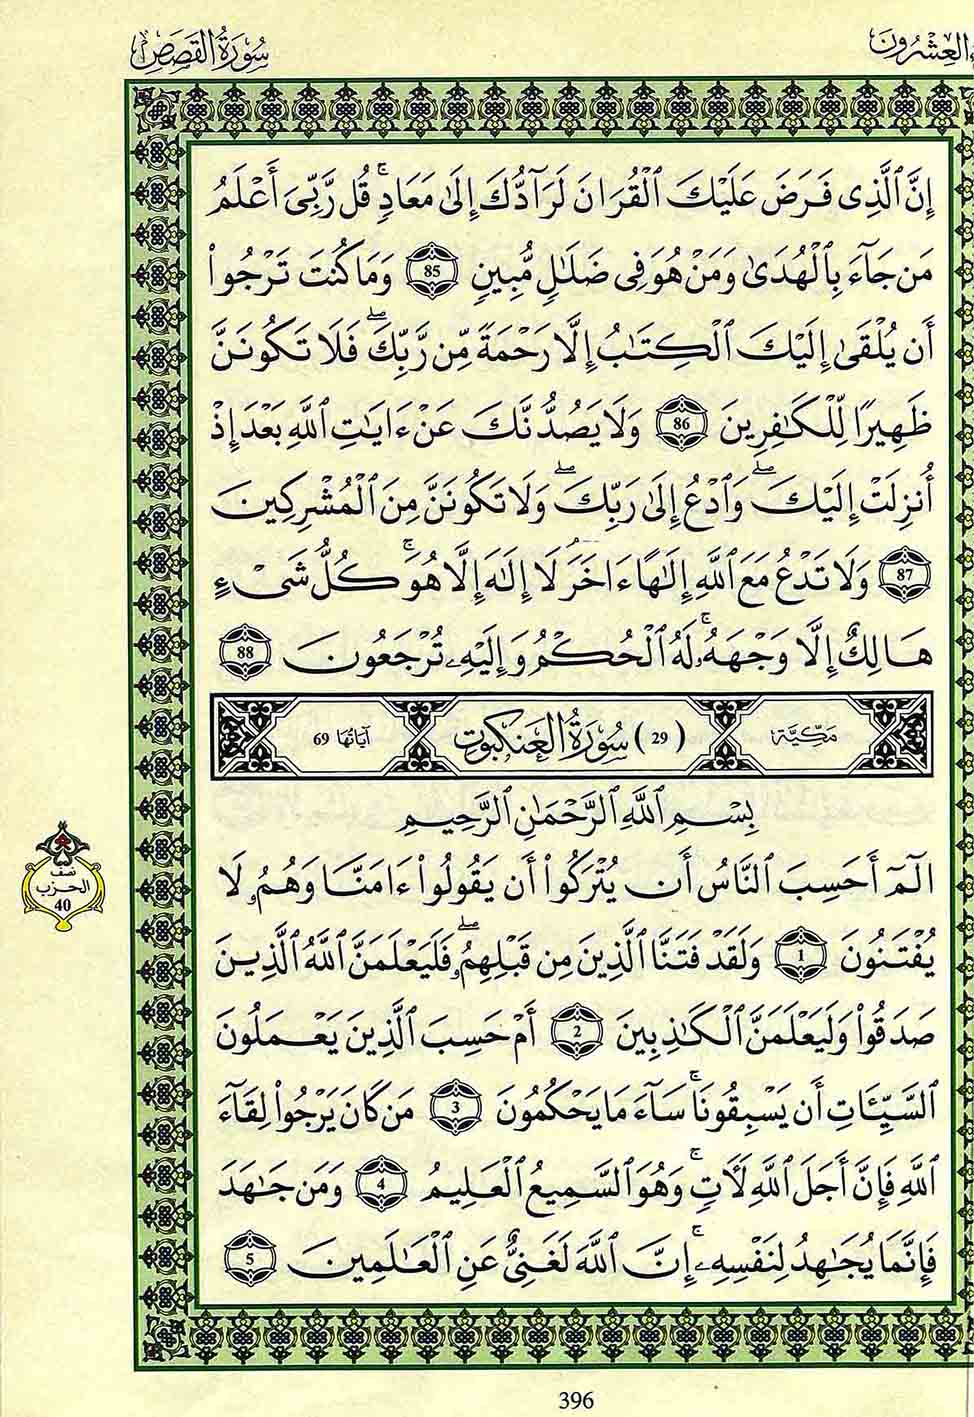 العِشْرُونَ سُورَةُ القَصَصِ
إِنَّ ٱلَّذِى فَرَضَ عَلَيْكَ ٱلْقُرَانَ لَرَآدُّكَ إِلَىٰ مَعَادٍۚ قُل رَّبِّىَ أَعْلَمُ
مَن جَآءَ بِٱلْهُدَىٰ وَمَنْ هُوَ فِى ضَلَٰلٍ مُّبِينٍ 85 وَمَا كُنتَ تَرْجُوٓاْ
أَن يُلْقَىٰٓ إِلَيْكَ ٱلْكِتَٰبُ إِلَّا رَحْمَةً مِّن رَّبِّكَۖ فَلَا تَكُونَنَّ
ظَهِيرًا لِّلْكَٰفِرِينَ 86 وَلَا يَصُدُّنَّكَ عَنْ ءَايَٰتِ ٱللَّهِ بَعْدَ إِذْ
أُنزِلَتْ إِلَيْكَۖ وَٱدْعُ إِلَىٰ رَبِّكَۖ وَلَا تَكُونَنَّ مِنَ ٱلْمُشْرِكِينَ
87 وَلَا تَدْعُ مَعَ ٱللَّهِ إِلَٰهًا ءَاخَرَ لَآ إِلَٰهَ إِلَّا هُوَۚ كُلُّ شَىْءٍ
هَالِكٌ إِلَّا وَجْهَهُۥۚ لَهُ ٱلْحُكْمُ وَإِلَيْهِۦ تُرْجَعُونَ 88
مَكِّيَّة (29) سُورَةُ العَنكَبُوتِ آيَاتُهَا 69
بِسْمِ ٱللَّهِ ٱلرَّحْمَٰنِ ٱلرَّحِيمِ
نصف
الحزب
40
الٓمٓ أَحَسِبَ ٱلنَّاسُ أَن يُتْرَكُوٓاْ أَن يَقُولُوٓاْ ءَامَنَّا وَهُمُۥ لَا
يُفْتَنُونَ 1 وَلَقَدْ فَتَنَّا ٱلَّذِينَ مِن قَبْلِهِمُۥۖ فَلَيَعْلَمَنَّ ٱللَّهُ ٱلَّذِينَ
صَدَقُواْ وَلَيَعْلَمَنَّ ٱلْكَٰذِبِينَ 2 أَمْ حَسِبَ ٱلَّذِينَ يَعْمَلُونَ
ٱلسَّيِّـَٔاتِ أَن يَسْبِقُونَاۚ سَآءَ مَا يَحْكُمُونَ 3 مَن كَانَ يَرْجُواْ لِقَآءَ
ٱللَّهِ فَإِنَّ أَجَلَ ٱللَّهِ لَأٓتٍۚ وَهُوَ ٱلسَّمِيعُ ٱلْعَلِيمُ 4 وَمَن جَٰهَدَ
فَإِنَّمَا يُجَٰهِدُ لِنَفْسِهِۦٓۚ إِنَّ ٱللَّهَ لَغَنِىٌّ عَنِ ٱلْعَٰلَمِينَ 5
396